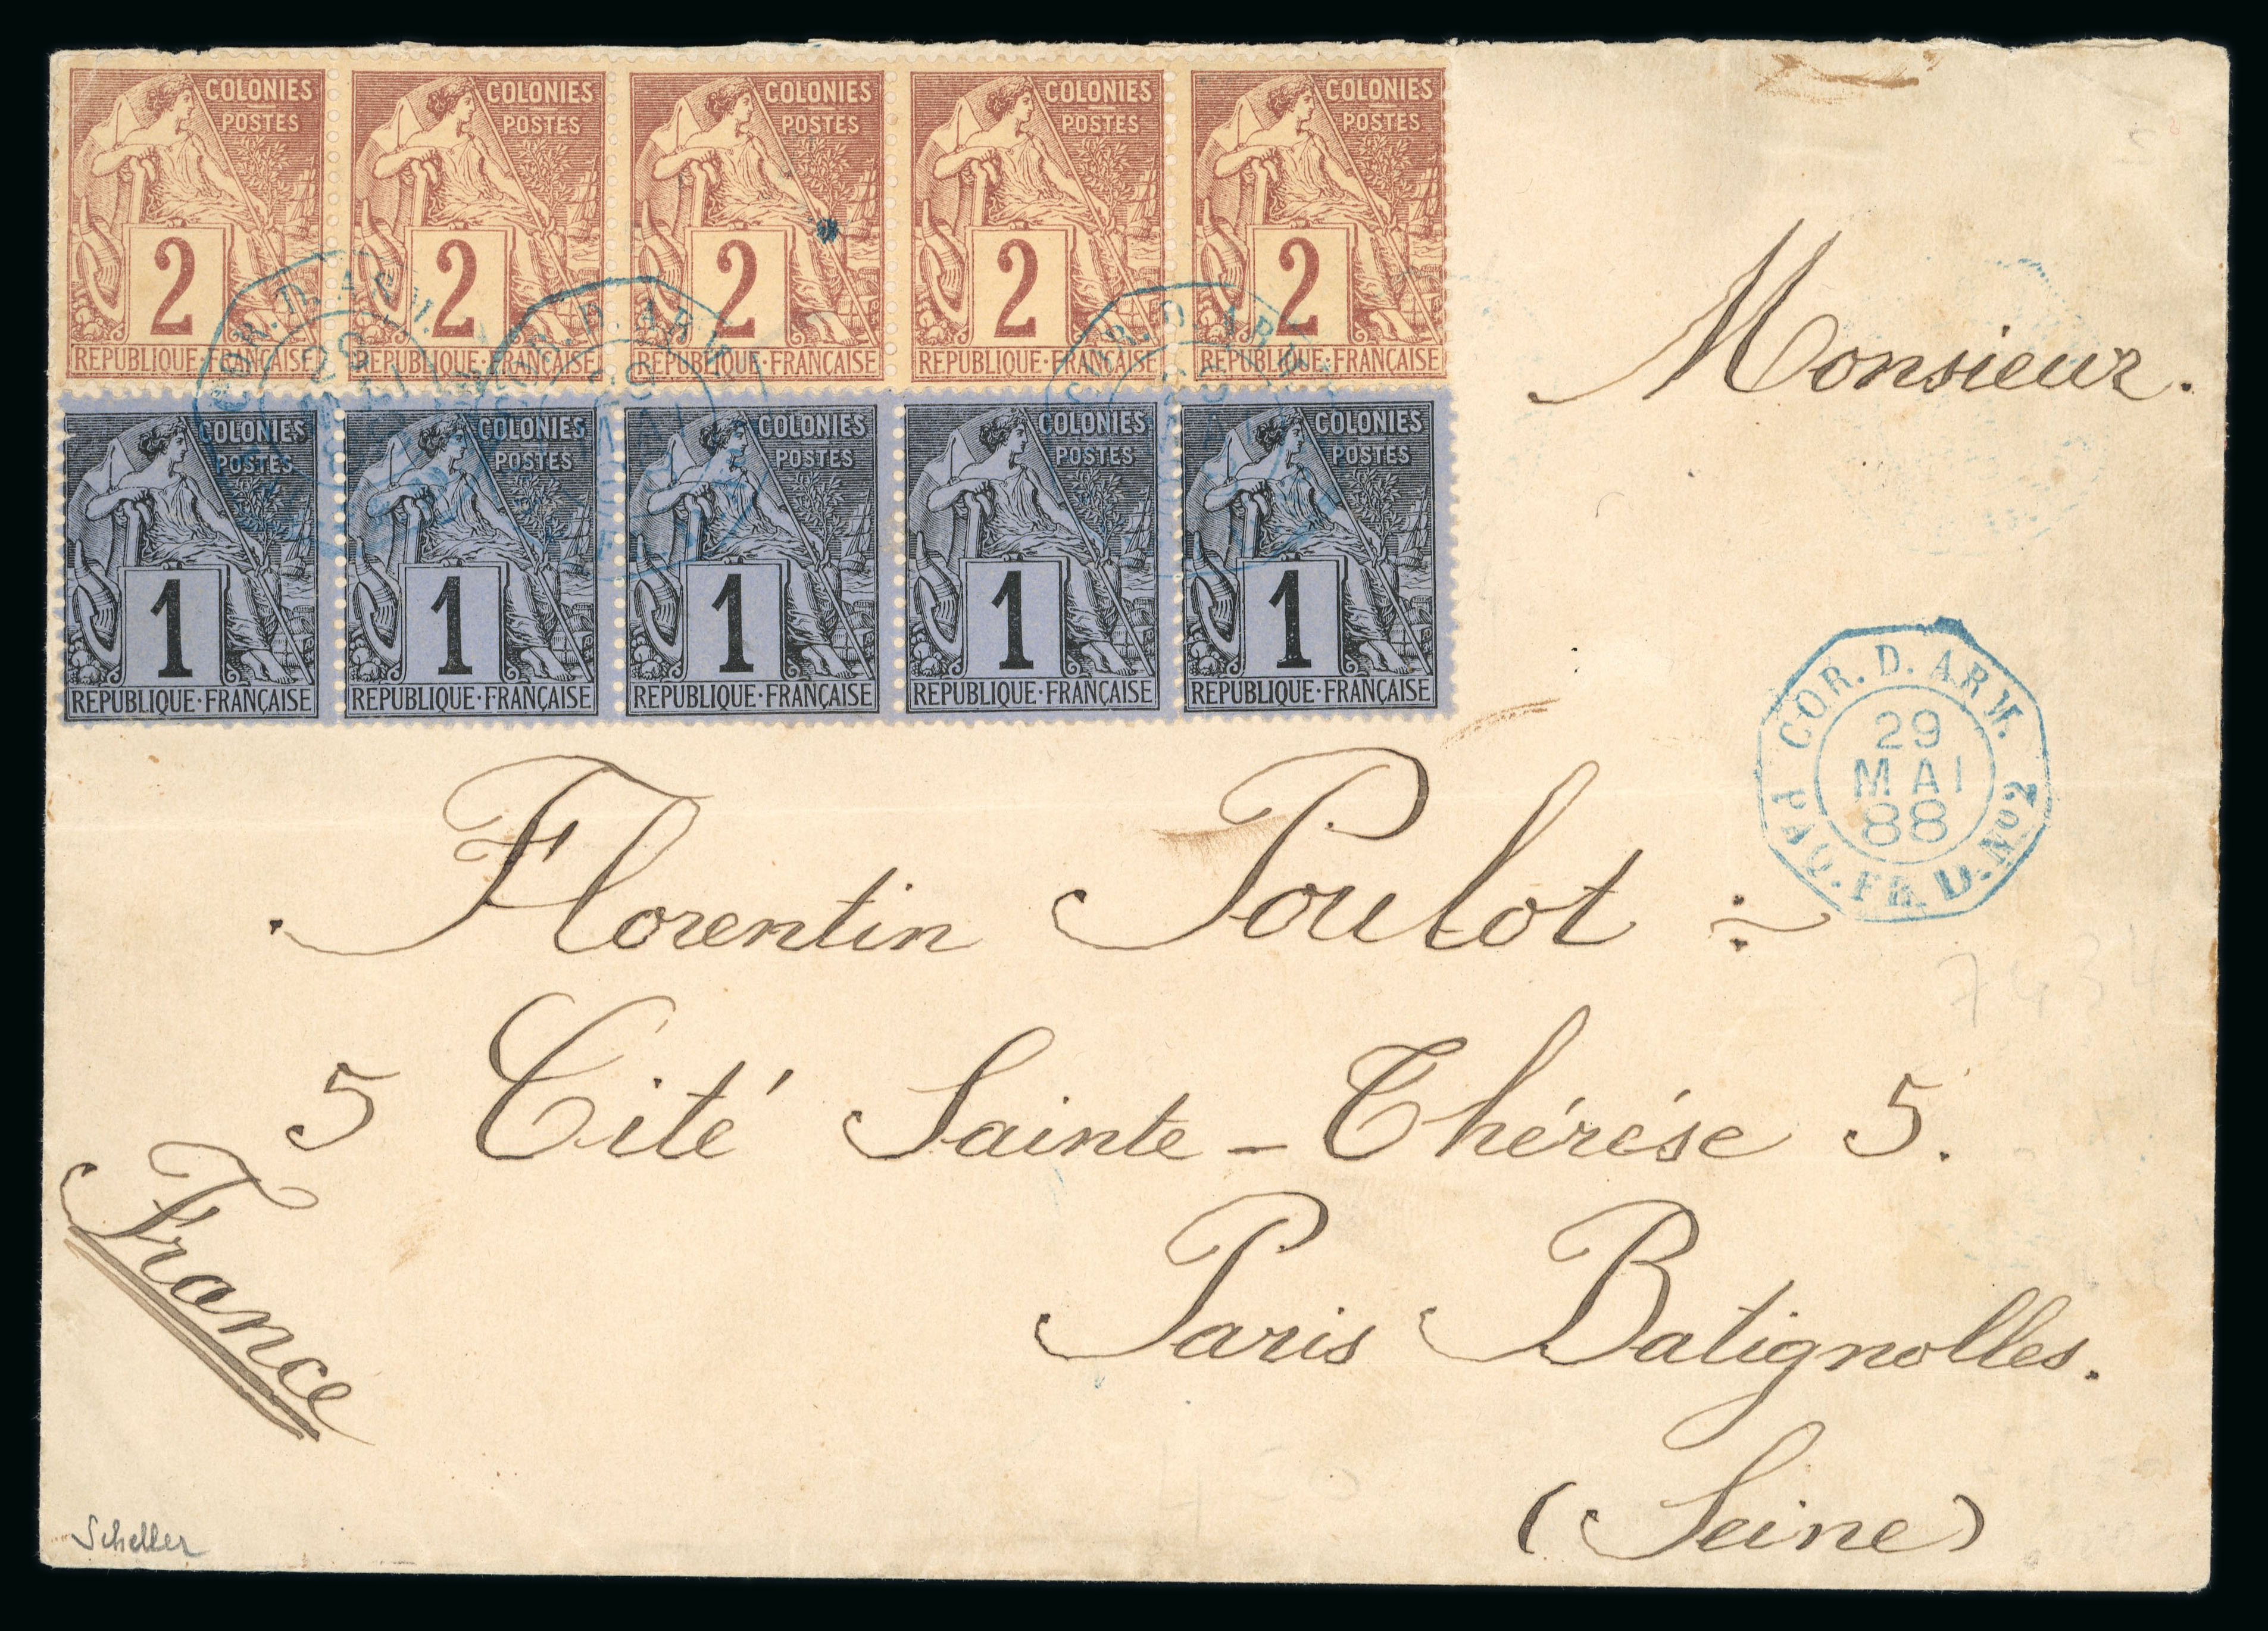 COLONIES COLONIES COLONIES COLONIES COLONIES
POSTES POSTES POSTES POSTES POSTES
2 2 2 2 2
REPUBLIQUE·FRANÇAISE REPUBLIQUE·FRANÇAISE REPUBLIQUE·FRANÇAISE REPUBLIQUE·FRANÇAISE REPUBLIQUE·FRANÇAISE
COLONIES COLONIES COLONIES COLONIES COLONIES
POSTES POSTES POSTES POSTES POSTES
1 1 1 1 1
REPUBLIQUE·FRANÇAISE REPUBLIQUE·FRANÇAISE REPUBLIQUE·FRANÇAISE REPUBLIQUE·FRANÇAISE REPUBLIQUE·FRANÇAISE
COR. D. ARM.
COR. D. ARM.
COR. D. ARM.
Monsieur.
COR. D. ARM.
29
MAI
88
PAQ. FR. D. No 2
Florentin Poulot
5 Cité Sainte-Thérése 5.
France
Paris Batignolles.
(Seine)
Scheller